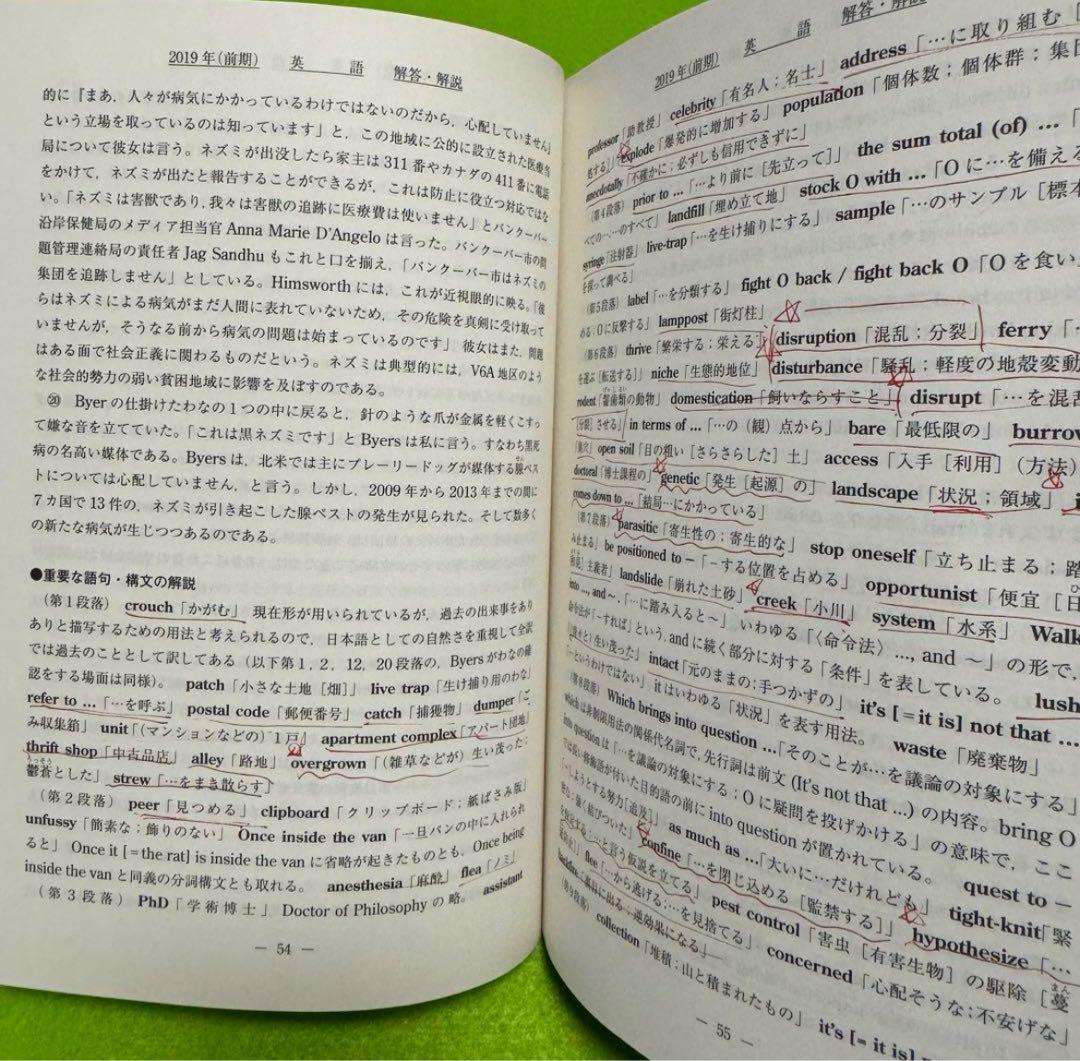 2019年(前期) 英 語 解答・解説
的に『まあ，人々が病気にかかっているわけではないのだから，心配していません』
という立場を取っているのは知っています」と，この地域に公的に設立された医療当
局について彼女は言う。ネズミが出没したら家主は311番やカナダの411番に電話
をかけて，ネズミが出たと報告することができるが，これは防止に役立つ対応ではな
い。「ネズミは害獣であり，我々は害獣の追跡に医療費は使いません」とバンクーバー
沿岸保健局のメディア担当官 Anna Marie D'Angelo は言った。バンクーバー市の問
題管理連絡局の責任者 Jag Sandhu もこれと口を揃え，「バンクーバー市はネズミの
集団を追跡しません」としている。Himsworth には，これが近視眼的に映る。「彼
らはネズミによる病気がまだ人間に表れていないため，その危険を真剣に受け取って
いませんが，そうなる前から病気の問題は始まっているのです」 彼女はまた，問題
はある面で社会正義に関わるものだという。ネズミは典型的には，V6A地区のよう
な社会的勢力の弱い貧困地域に影響を及ぼすのである。
⑳ Byer の仕掛けたわなの1つの中に戻ると，針のような爪が金属を軽くこすっ
て嫌な音を立てていた。「これは黒ネズミです」と Byers は私に言う。すなわち黒死
病の名高い媒体である。Byers は，北米では主にプレーリードッグが媒体する腺ペス
トについては心配していません，と言う。しかし，2009年から2013年までの間に
7カ国で13件の，ネズミが引き起こした腺ペストの発生が見られた。そして数多く
の新たな病気が生じつつあるのである。
●重要な語句・構文の解説
(第1段落) crouch「かがむ」 現在形が用いられているが，過去の出来事をあり
ありと描写するための用法と考えられるので，日本語としての自然さを重視して全訳
では過去のこととして訳してある（以下第1，2，12，20段落の，Byers がわなの確
認をする場面は同様）。 patch「小さな土地［畑］」 live trap「生け捕り用のわな」
refer to ...「…を呼ぶ」 postal code「郵便番号」 catch「捕獲物」 dumper「ご
み収集箱」 unit「（マンションなどの）1戸」 apartment complex「アパート団地」
thrift shop「中古品店」 alley「路地」 overgrown「（雑草などが）生い茂った；
鬱蒼とした」 strew「…をまき散らす」
(第2段落) peer「見つめる」 clipboard「クリップボード；紙ばさみ版」
unfussy「簡素な；飾りのない」 Once inside the van「一旦バンの中に入れられ
ると」 Once it [＝the rat] is inside the van に省略が起きたものとも，Once being
inside the van と同義の分詞構文とも取れる。 anesthesia「麻酔」 flea「ノミ」
(第3段落) PhD「学術博士」 Doctor of Philosophy の略。 assistant
― 54 ―
2019年(前期) 英 語 解答・解説
professor「助教授」 celebrity「有名人；名士」 address「…に取り組む
処する」 explode「爆発的に増加する」 population「個体数；個体群；集団
anecdotally「不確かに；必ずしも信用できずに」
(第4段落) prior to ...「…より前に［先立って］」 the sum total (of) ...「
べての…，…のすべて」 landfill「埋め立て地」 stock O with ...「Oに…を備える
syringe「注射器」 live-trap「…を生け捕りにする」 sample「…のサンプル［標本
を採って調べる」
(第5段落) label「…を分類する」 fight O back / fight back O「Oを食い
める；Oに反撃する」 lamppost「街灯柱」
(第6段落) thrive「繁栄する；栄える」 disruption「混乱；分裂」 ferry「…
を運ぶ［転送する］」 niche「生態的地位」 disturbance「騒乱；軽度の地殻変動
rodent「齧歯類の動物」 domestication「飼いならすこと」 disrupt「…を混乱
［分裂］させる」 in terms of ...「…の（観）点から」 bare「最低限の」 burrow
「巣穴」 open soil「目の粗い［さらさらした］土」 access「入手［利用］（方法）
doctoral「博士課程の」 genetic「発生［起源］の」 landscape「状況；領域」
comes down to ...「結局…にかかっている」
(第7段落) parasitic「寄生性の；寄生的な」 stop oneself「立ち止まる；踏
み止まる」 be positioned to ―「―する位置を占める」 opportunist「便宜［日
和見］主義者」 landslide「崩れた土砂」 creek「小川」 system「水系」 Walk
into ..., and ～,「…に踏み入ると～」 いわゆる「〈命令法〉..., and ～」の形で，
命令法が「―すれば」という，and に続く部分に対する「条件」を表している。 lush
「青々と］生い茂った」 intact「元のままの；手つかずの」 it's [＝it is] not that ...
「…というわけではない」 it はいわゆる「状況」を表す用法。 waste「廃棄物」
(第8段落) Which brings into question ...「そのことが…を議論の対象にする」
which は非制限用法の関係代名詞で，先行詞は前文 (It's not that ...) の内容。bring O
into question は「…を議論の対象にする；Oに疑問を投げかける」の意味で，ここ
では長い修飾語が付いた目的語の前に into question が置かれている。 quest to ―
「―しようとする努力［追及］」 as much as ...「大いに…だけれども」 tight-knit「緊
密な；強く結びついた」 confine「…を閉じ込める［監禁する］」 hypothesize「…
を仮定する；…と言う仮説を立てる」 pest control「害虫［有害生物］の駆除
flee「…から逃げる；…を見捨てる」 concerned「心配そうな；不安げな」
backfire「裏目に出る；逆効果になる」
(第9段落) collection「堆積；山と積まれたもの」 it's [＝it is]
― 55 ―